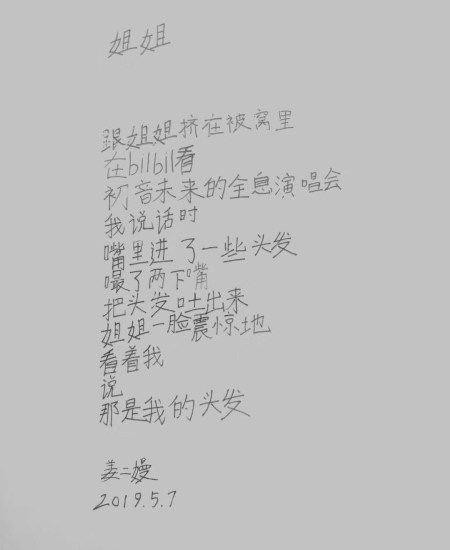 姐姐
跟姐姐挤在被窝里
在bilbil看
初音未来的全息演唱会
我说话时
嘴里进了一些头发
嘬了两下嘴
把头发吐出来
姐姐一脸震惊地
看着我
说
那是我的头发
姜二嫚
2019.5.7